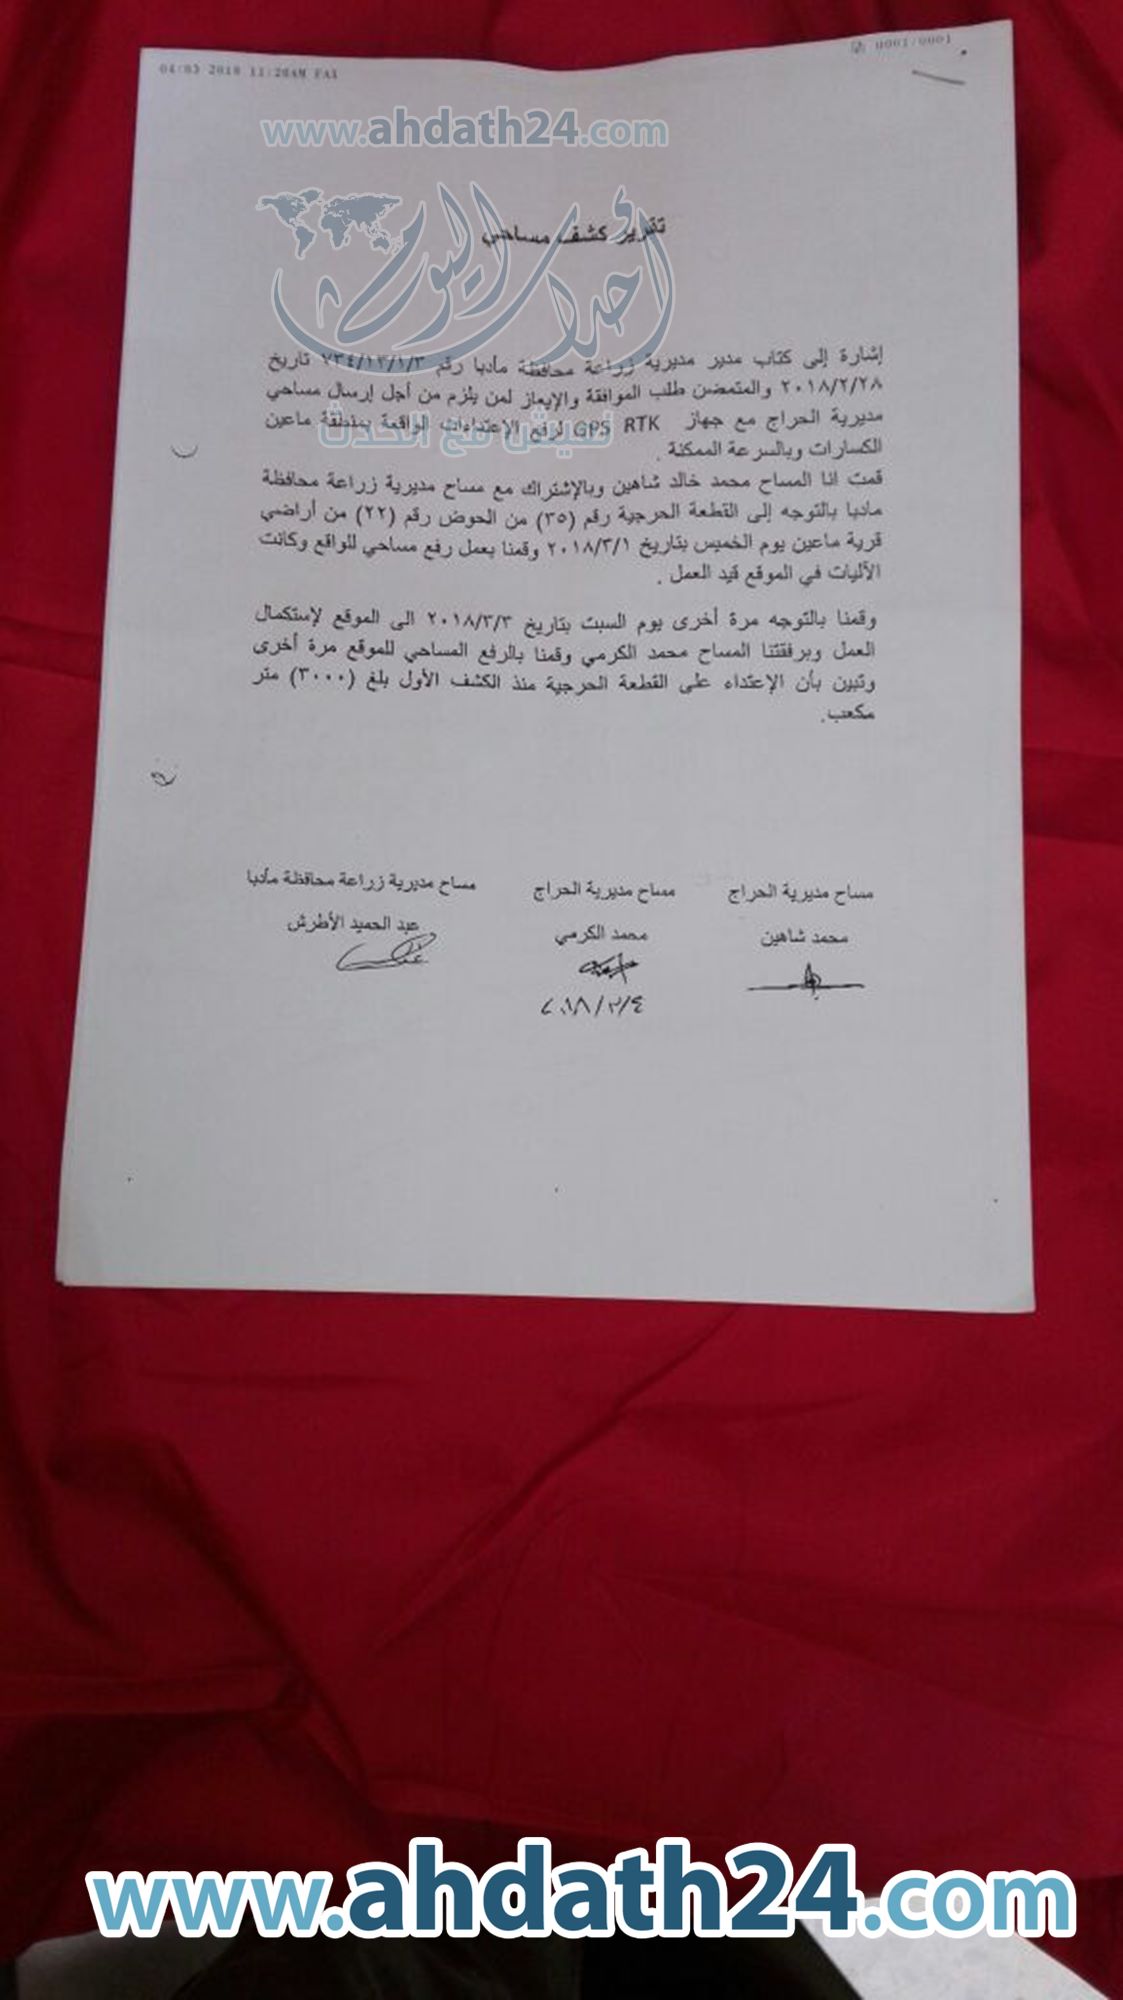 04/03 2018 11:20AM FAX
0001/0001
www.ahdath24.com
أحداث اليوم
تقرير كشف مساحي
إشارة إلى كتاب مدير مديرية زراعة محافظة مأدبا رقم ٧٣٤/١٣/١/٣ تاريخ
٢٠١٨/٢/٢٨ والمتمضن طلب الموافقة والإيعاز لمن يلزم من أجل إرسال مساحي
مديرية الحراج مع جهاز GPS RTK لرفع الإعتداءات الواقعة بمنطقة ماعين
نعيش مع الحدث
الكسارات وبالسرعة الممكنة .
قمت انا المساح محمد خالد شاهين وبالإشتراك مع مساح مديرية زراعة محافظة
مادبا بالتوجه إلى القطعة الحرجية رقم (٣٥) من الحوض رقم (٢٢) من أراضي
قرية ماعين يوم الخميس بتاريخ ٢٠١٨/٣/١ وقمنا بعمل رفع مساحي للواقع وكانت
الأليات في الموقع قيد العمل .
وقمنا بالتوجه مرة أخرى يوم السبت بتاريخ ٢٠١٨/٣/٣ الى الموقع لإستكمال
العمل وبرفقتنا المساح محمد الكرمي وقمنا بالرفع المساحي للموقع مرة أخرى
وتبين بأن الإعتداء على القطعة الحرجية منذ الكشف الأول بلغ (٣٠٠٠) متر
مكعب.
مساح مديرية الحراج مساح مديرية الحراج مساح مديرية زراعة محافظة مأدبا
محمد شاهين محمد الكرمي عبد الحميد الأطرش
٢٠١٨/٣/٤
www.ahdath24.com